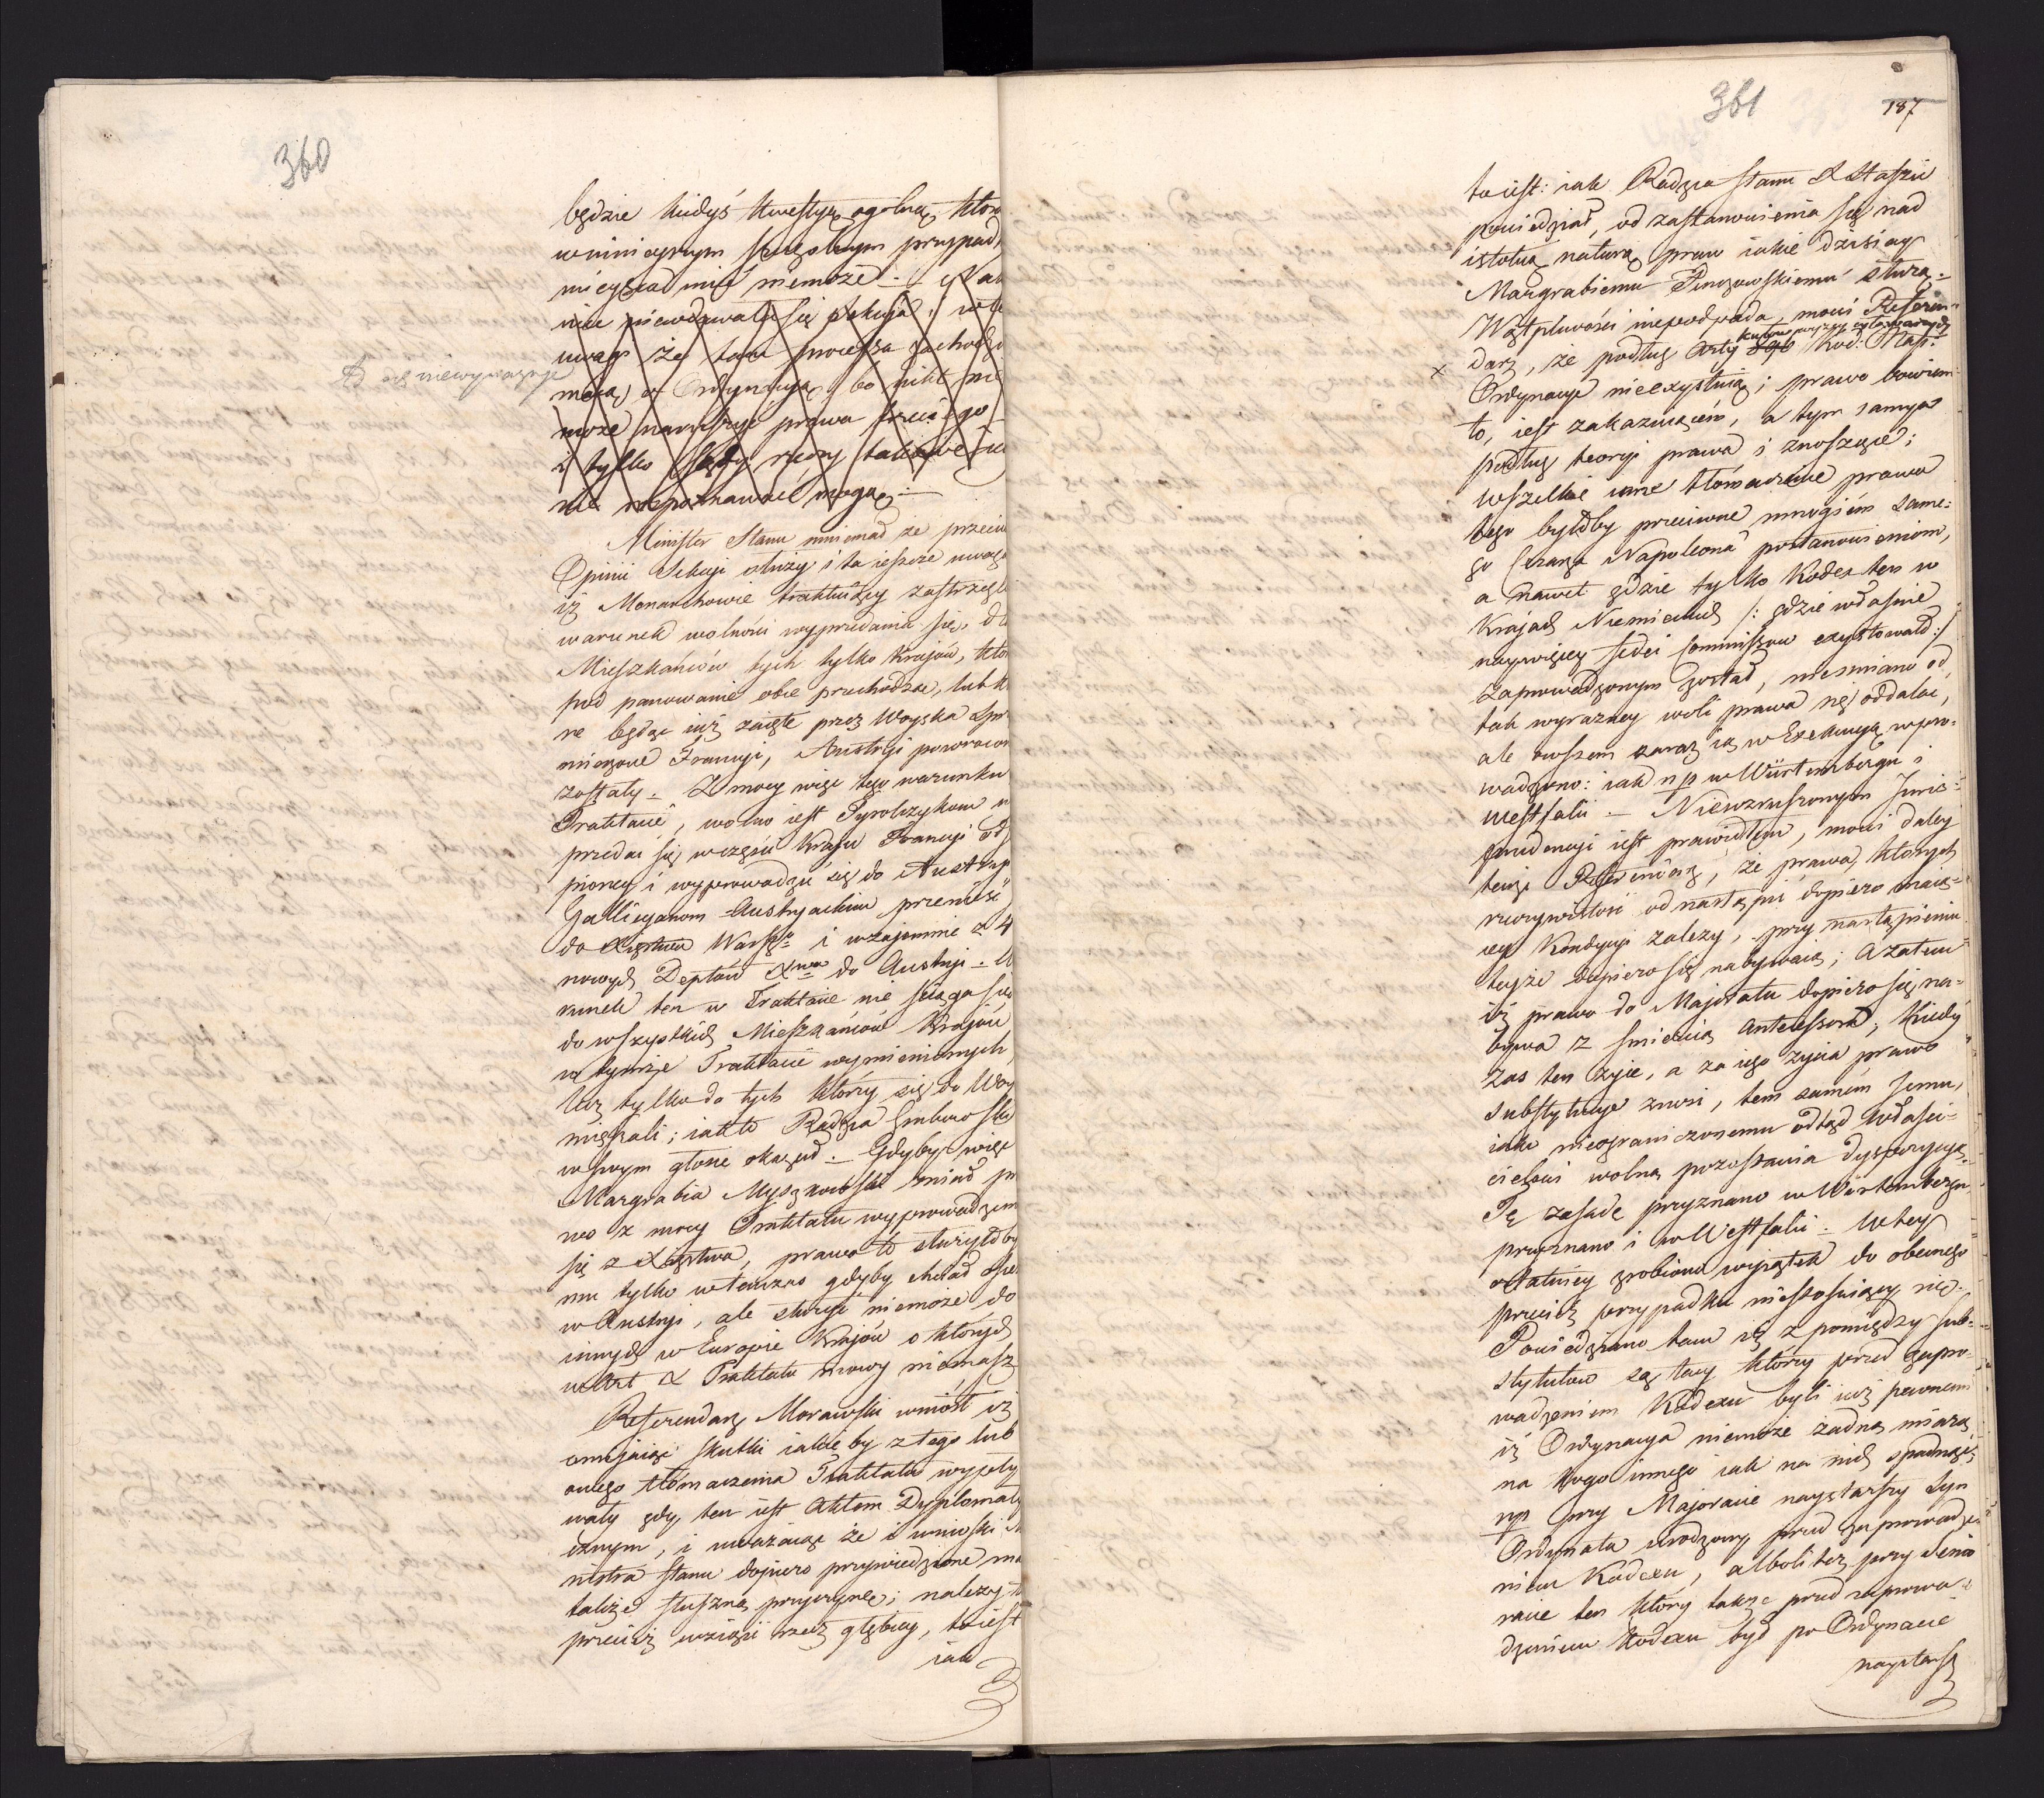 360
będzie kiedyś kwestyą ogolną, ktor
w niniejszym szczegolnym przypad
mieysca mieć niemoże.—
nie niewdawała się Sekcja; w te
uwagi że tam processa zachodzi
mają o Ordynacyą, bo nikt nie
może naruszyć prawa trzeciego
i tylko Sądy rzeczy takowe
nie rozpoznawać mogą.—
Minister Stanu mniemał że przeciw
Opinii Sekcyi służy i ta ieszcze uwaga
iż Monarchowie traktuiący zastrzegli
warunek wolności wyprzedania się, dla
Mieszkańców tych tylko Kraiów, któ
pod panowanie obce przechodzą, lub k
re będąc iuż zaięte przez Woyska Spr
mierzone Francyi, Austryi powrocon
zostały.— Z mocy więc tego warunku
Traktacie, wolno iest Tyrolczykom w
przedać się w części Kraiu Francyi od
pioney i wyprowadzić się do Austryi
Gallicyanom Austryackim przenieść
do Xięstwa Warsz: i wzajemnie z 4
nowych Deptów Xtwa do Austryi.— W
runek ten w Traktacie nie ściąga się
do wszystkich Mieszkańców Kraiów
w tymże Traktacie wymienionych,
lecz tylko do tych którzy się do Woy
mięszali; iak to Radzca Grabowski
w swym głosie okazał.— Gdyby więc
Margrabia Myszkowski miał pr
wo z mocy Traktatu wyprowadzenia
się z Xięstwa, prawo to służyłoby
mu tylko wtenczas gdyby chciał osie
w Austryi, ale służyć niemoże do
innych w Europie Kraiów o których
w Art X Traktatu mowy niemasz
Referendarz Morawski wniósł iż
omijaiąc skutki iakie by z tego lub
owego tłómaczenia Traktatu wypły
wały gdy ten iest Aktem Dyplomaty
cznym, i uważaiąc że i wnioski Mi
nistra Stanu dopiero przywiedzione ma
także słuszną przyczynę; należy
przecież wziąść rzecz głębiey, to iest
iak
361
187
to iest: iak Radzca Stanu X Staszic
powiedział, od zastanowienia się nad
istotną naturą praw iakie dzisiay
Margrabiemu Pinczowskiemu służą.—
Wątpliwości niepodpada, mowi Referen
x darz, że podług Arty Kod: Nap:
Ordynacye nieexystuią; prawo bowiem
to, iest zakazuiącem, a tym samym
podług teoryi prawa i znoszące;
wszelkie inne tłómaczenie prawa
tego byłoby przeciwne mnogiem same
go Cesarza Napoleona postanowieniom,
a nawet gdzie tylko Kodex ten w
Krajach Niemieckich /: gdzie właśnie
naywięcey fidei Commissow exystowało:/
zaprowadzonym został, nieśmiano od
tak wyrazney woli prawa się oddalać,
ale owszem zaraz ią w Exekucyą wpro-
wadzono: iak np w Würtembergu i
Westfalii.— Niewzruszonym Juris-
prudencyi iest prawidłem, mowi daley
tenże Referendarz, że prawa, których
rzeczywistość od nastąpić dopiero maią-
cey Kondycyi zależy, przy nastąpieniu
teyże dopiero się nabywaią; a zatem
iż prawo do Majoratu dopiero się na-
bywa z śmiercią Antecessora; kiedy
zas ten żyie, a za iego życia prawo
substytucye znosi, tem samém jemu,
iako nieograniczonemu odtąd Właści-
cielowi wolna pozostawia dyspozycyą.
Tę zasadę przyznano w Würtembergu,
przyznano i w Westfalii.— W tey
ostatniey zrobiono wyiątek do obecnego
przecież przypadku niestosuiący się.
Powiedziano tam iż z pomiędzy sub-
stytutow są tacy którzy przed zapro-
wadzeniem Kodexu byli iuż pewnemi
iż Ordynacya niemoże żadną miarą
na kogo innego iak na nich spadnąć;
np przy Majoracie naystarszy Syn
Ordynata urodzony przed zaprowadze
niem Kodexu, alboli też przy Senio
racie ten który także przed zaprowa-
dzeniem Kodexu był po Ordynacie
naystarszy